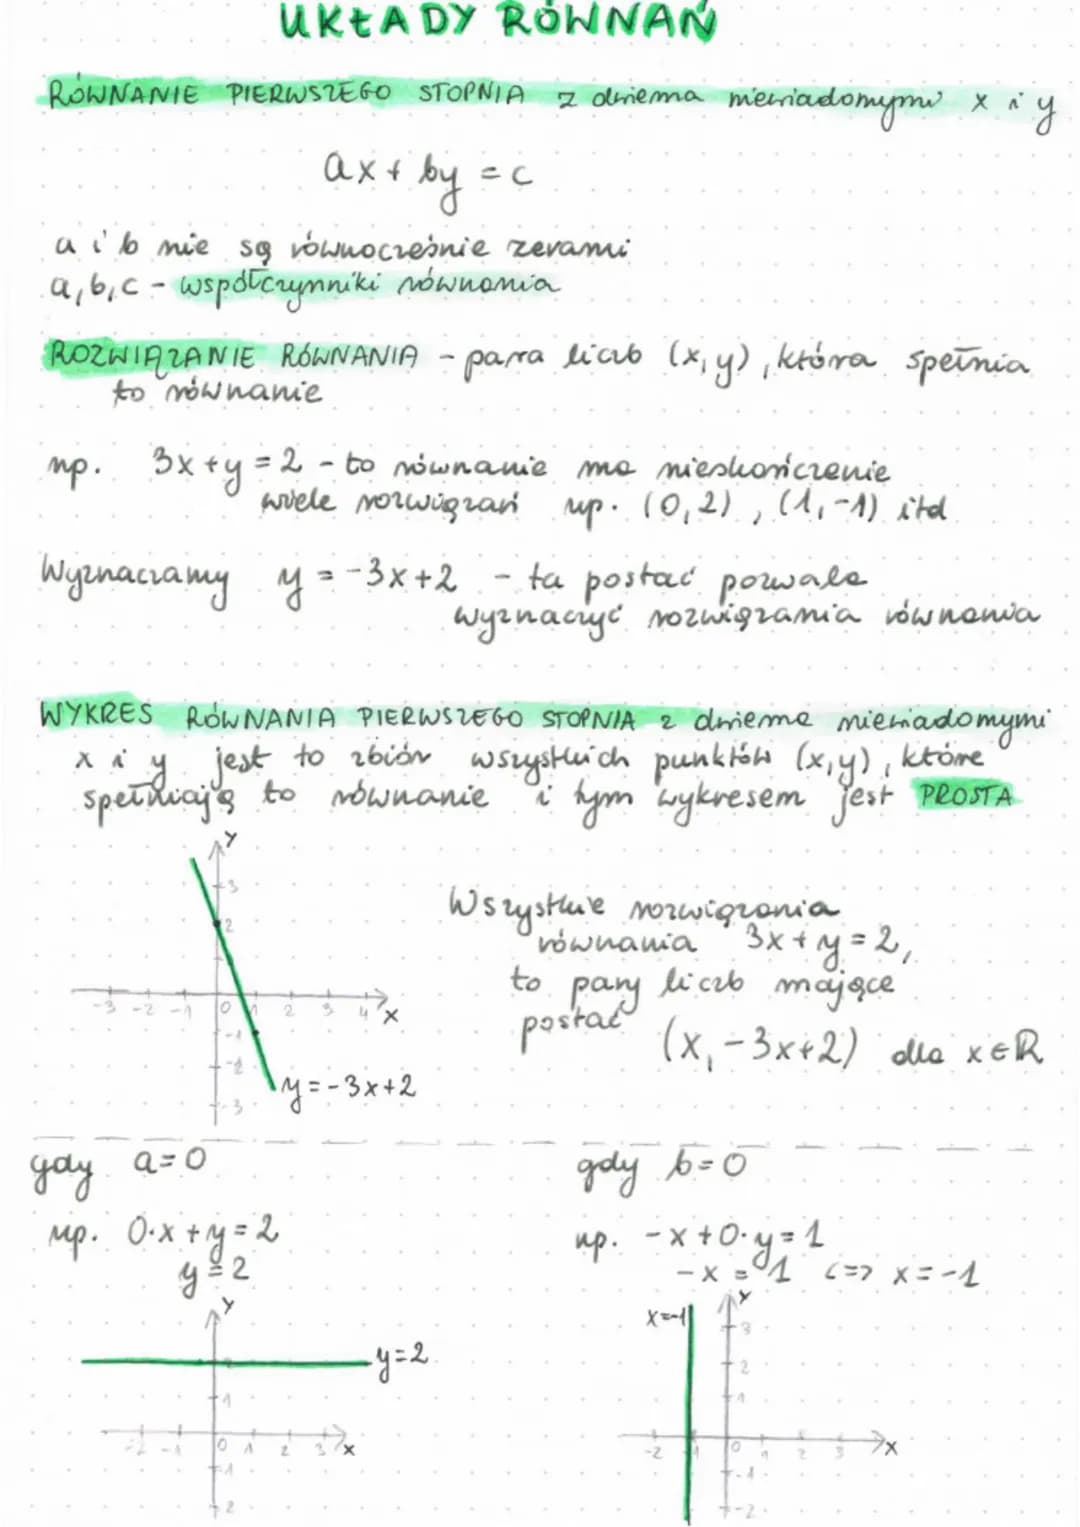 UKŁADY RÓWNAŃ
RÓWNANIE PIERWSZEGO STOPNIA z dwiema niewiadomymi x i y
ax + by = c
a i b nie są równocześnie zerami
a, b, c - współczynniki równania
ROZWIĄZANIE RÓWNANIA - para liczb (x, y), która spełnia
to równanie
np. 3x + y = 2 - to równanie ma nieskończenie
wiele rozwiązań np. (0, 2), (1, -1) itd
Wyznaczamy y = -3x+2 - ta postać pozwala
wyznaczyć rozwiązania równania
WYKRES RÓWNANIA PIERWSZEGO STOPNIA z dwiema niewiadomymi
x i y jest to zbiór wszystkich punktów (x, y), które
spełniają to równanie i tym wykresem jest PROSTA
Y
3
2
-3 -2 -1 0 1 2 3 4 X
-1
-2
-3
y = -3x+2
Wszystkie rozwiązania
równania 3x + y = 2,
to pary liczb mające
postać (x, -3x+2) dla x∈R
gdy a=0
np. 0·x + y = 2
y = 2
Y
y=2
1
-2 -1 0 1 2 3 X
-1
2
gdy b=0
np. -x + 0·y = 1
-x = 1 <=> x = -1
x=-1
Y
3
2
1
-2 -1 0 1 2 3 X
-1
-2